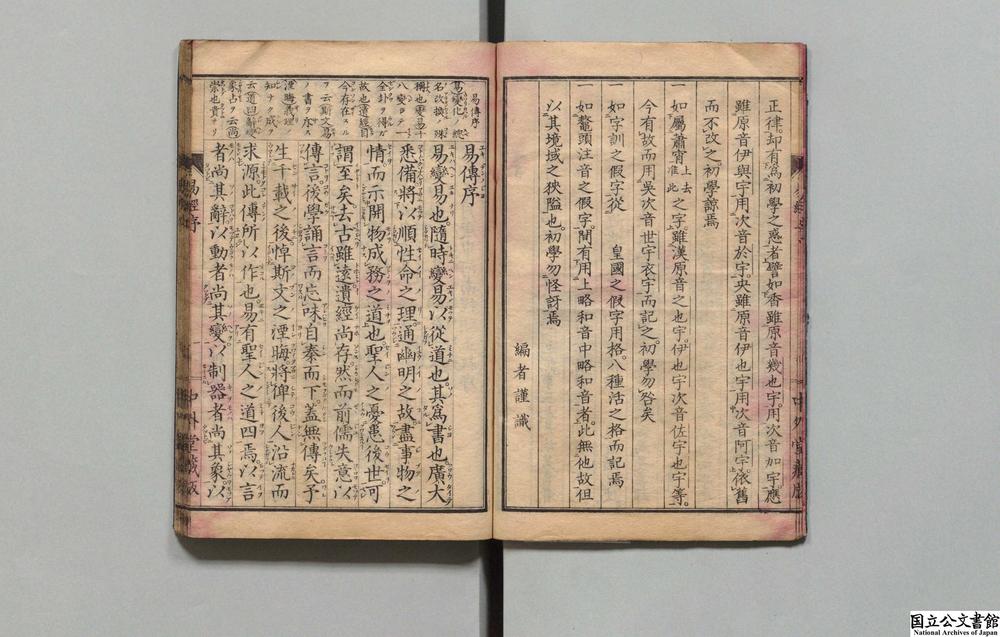 正律。却有爲初學之惑者。譬如香雖原音幾也宇用次音加宇應
雖原音伊與宇用次音於宇。央雖原音伊也宇用次音阿宇。依舊
而不改之。初學諒焉
一 如屬蕭宵上去准此之字。雖漢原音之也宇。伊也宇次音佐宇也宇等。
今有故而用吳次音世宇衣宇而記之。初學勿咎矣
一 如字訓之假字。從 皇國之假字用格。八種活之格而記焉
一 如鼇頭注音之假字。間有用上略和音中略和音者。此無他故。但
以其境域之狹隘也。初學勿怪訝焉
編者謹識
易傳序
易變化ノ總
名改換ノ殊
稱也變易十
八變ヲ
全卦ヲ得ガ
故也遺經目
今存在スル
ヲ云斯文易
ノ書ヲ亦ス
湮晦義理ノ
知ナク成ヲ
云
易傳序
易變易也。隨時變易以從道也。其爲書也廣大
悉備。將以順性命之理。通幽明之故。盡事物之
情。而示開物成務之道也。聖人之憂患後世。可
謂至矣。去古雖遠。遺經尚存。然而前儒失意以
傳言。後學誦言而忘味。自秦而下。蓋無傳矣。予
生千載之後。悼斯文之湮晦。將俾後人沿流而
求源。此傳所以作也。易有聖人之道四焉。以言
者尚其辭。以動者尚其變。以制器者尚其象。以
易經序
中外堂藏版
国立公文書館
National Archives of Japan